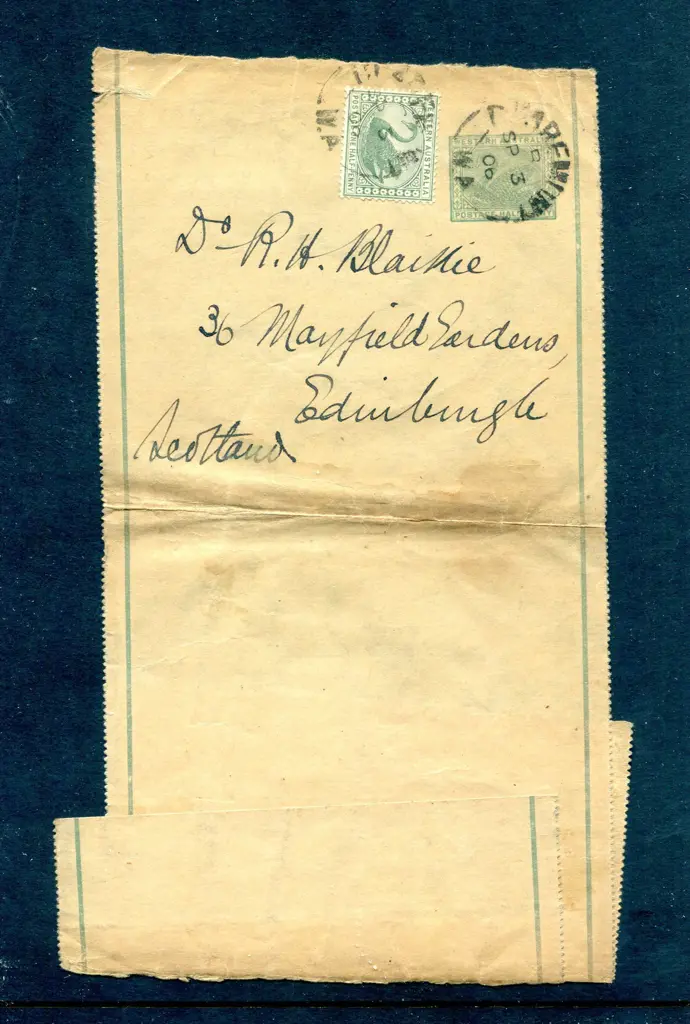 WESTERN AUSTRALIA
POSTAGE ONE HALF-PENNY
CLAREMONT
SP 3
06
WA
WESTERN AUSTRALIA
POSTAGE HALF PENNY
Dr R. H. Blaikie
36 Mayfield Gardens,
Edinburgh
Scotland